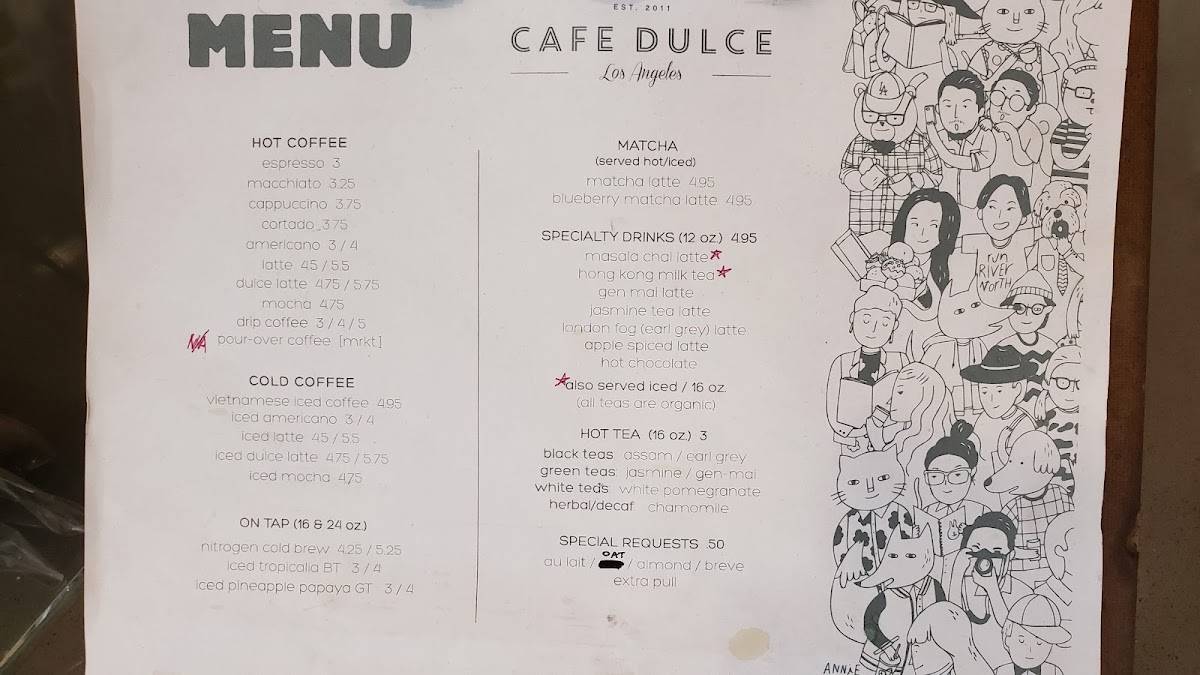 MENU
HOT COFFEE
espresso 3
macchiato 3.25
cappuccino 3.75
cortado 3.75
americano 3 / 4
latte 4.5 / 5.5
dulce latte 4.75 / 5.75
mocha 4.75
drip coffee 3 / 4 / 5
N/A pour-over coffee [mrkt]
COLD COFFEE
vietnamese iced coffee 4.95
iced americano 3 / 4
iced latte 4.5 / 5.5
iced dulce latte 4.75 / 5.75
iced mocha 4.75
ON TAP (16 & 24 oz.)
nitrogen cold brew 4.25 / 5.25
iced tropicalia BT 3 / 4
iced pineapple papaya GT 3 / 4
EST. 2011
CAFE DULCE
Los Angeles
MATCHA
(served hot/iced)
matcha latte 4.95
blueberry matcha latte 4.95
SPECIALTY DRINKS (12 oz.) 4.95
masala chai latte☆
hong kong milk tea☆
gen mai latte
jasmine tea latte
london fog (earl grey) latte
apple spiced latte
hot chocolate
☆also served iced / 16 oz.
(all teas are organic)
HOT TEA (16 oz.) 3
black teas: assam / earl grey
green teas: jasmine / gen-mai
white teas: white pomegranate
herbal/decaf: chamomile
SPECIAL REQUESTS .50
OAT
au lait / / almond / breve
extra pull
LA
run
RIVER
NORTH